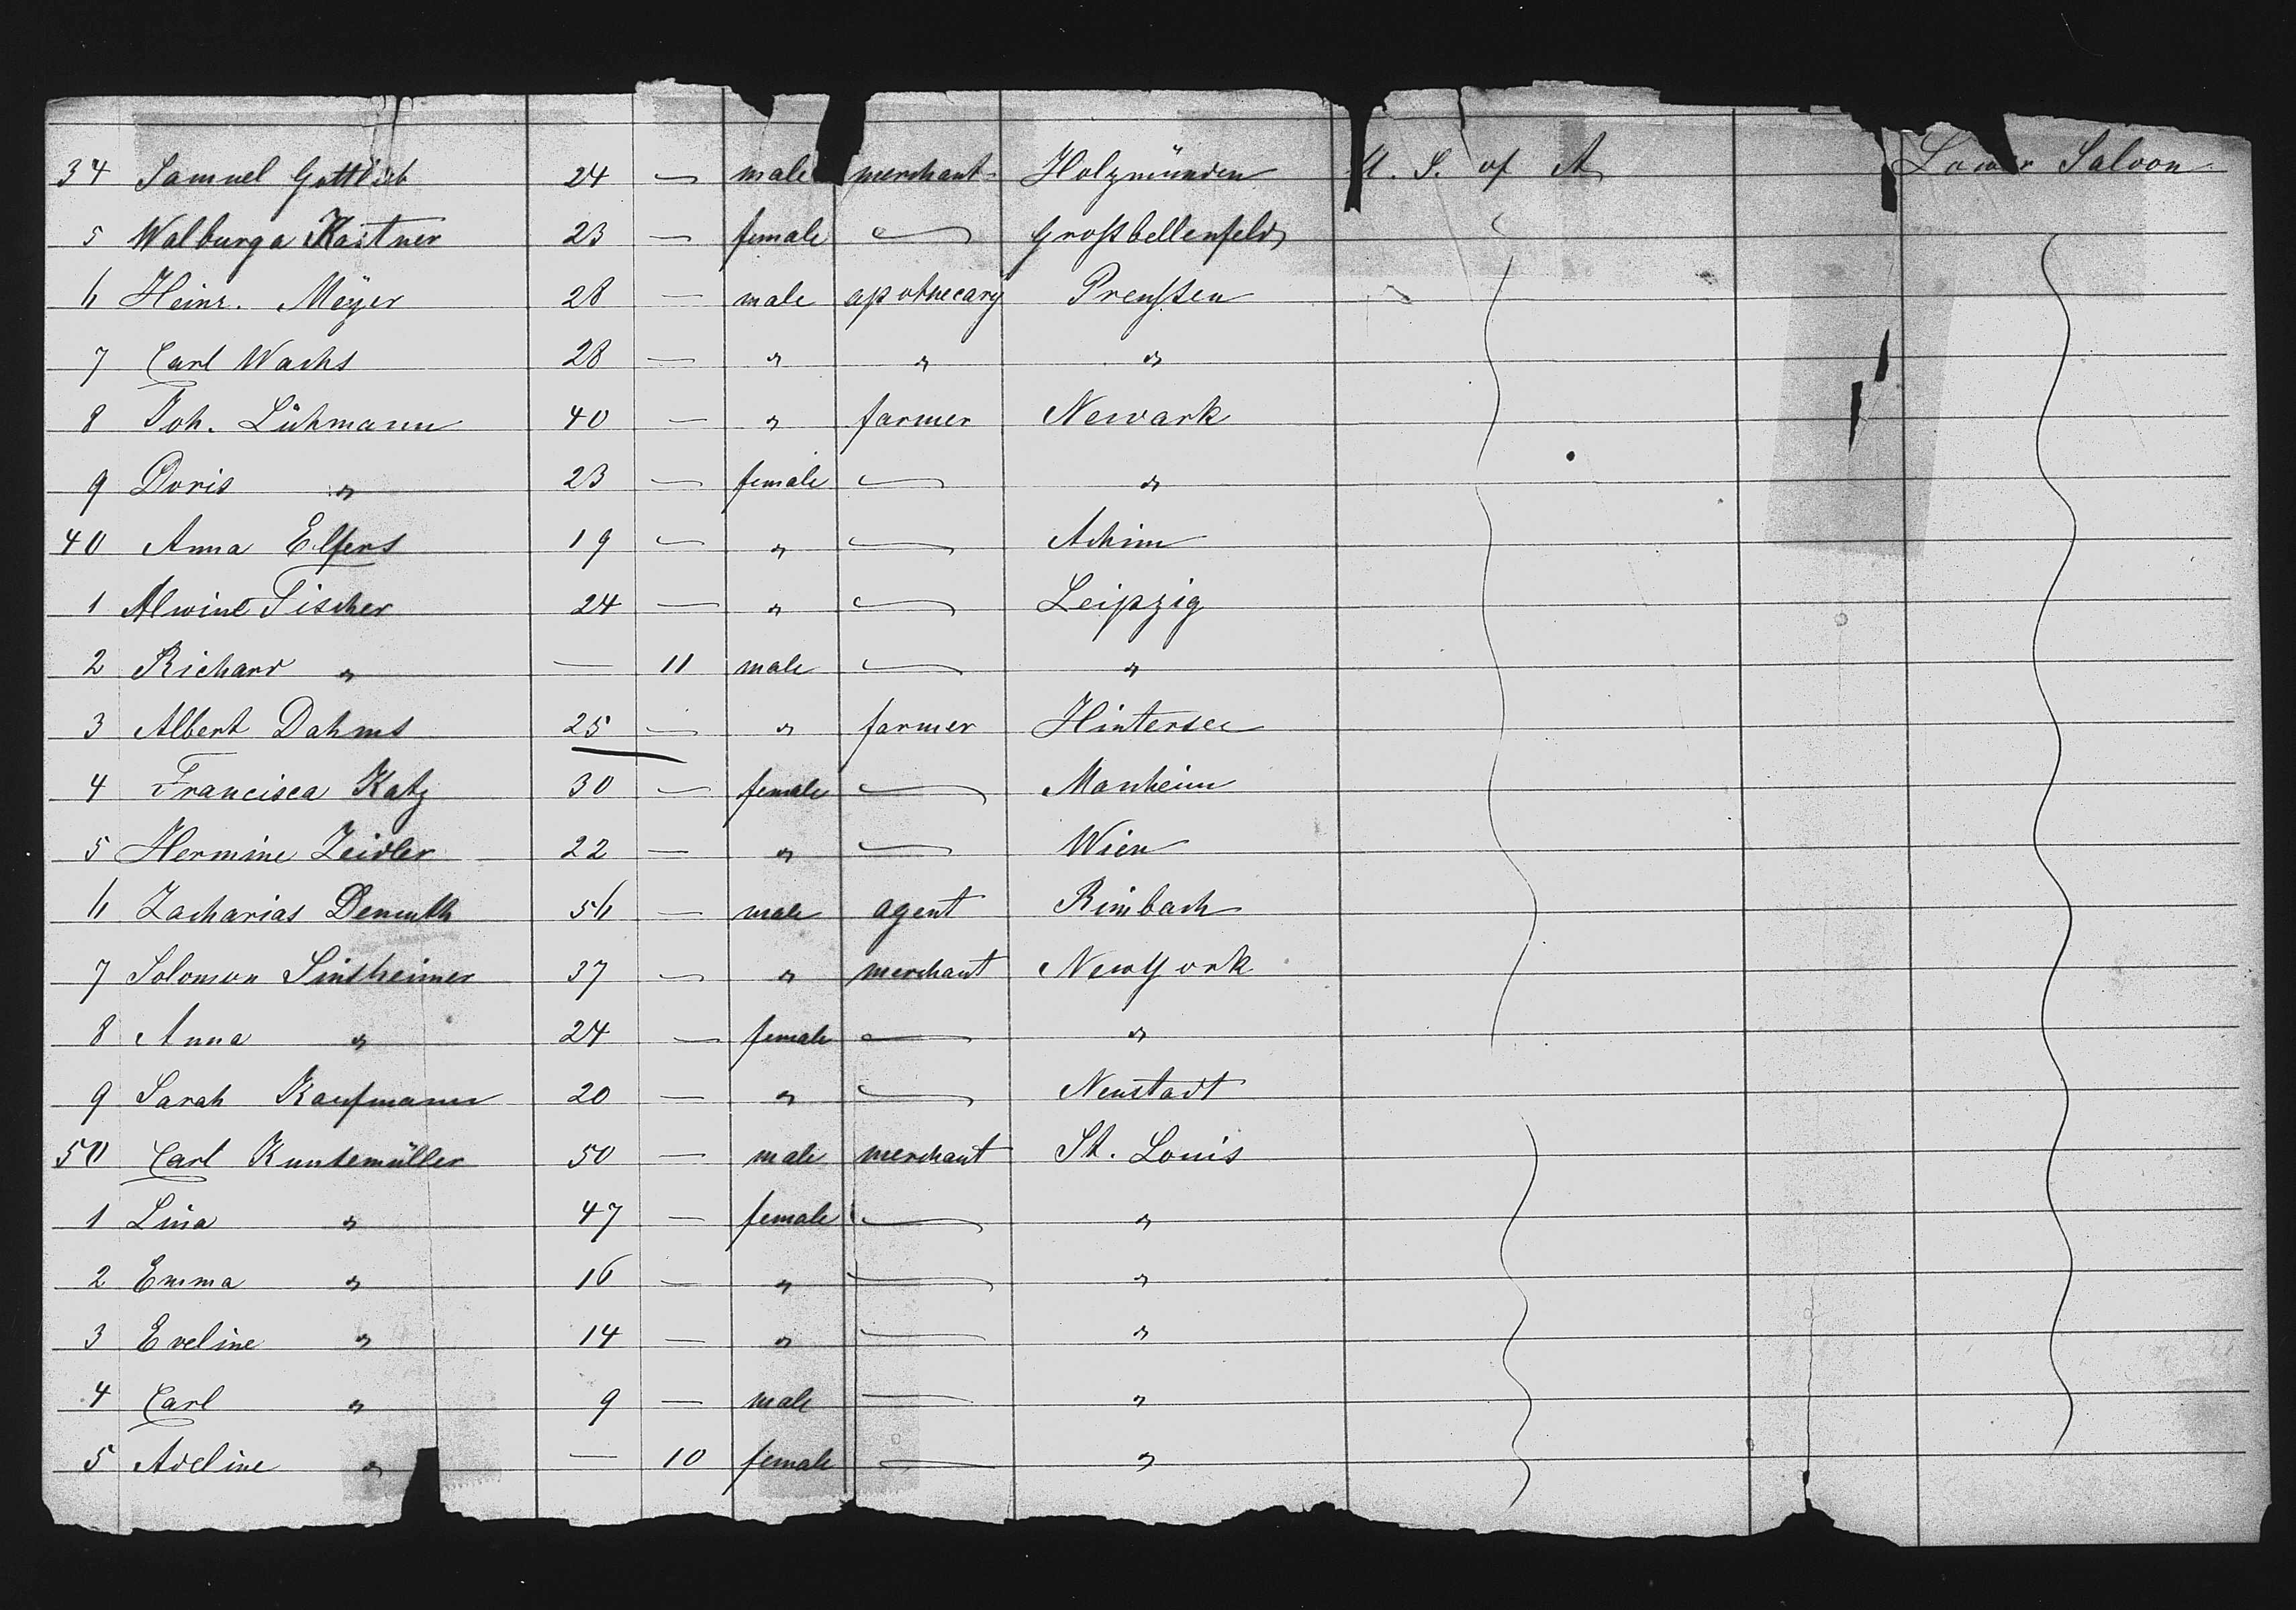 34 Samuel Gottlieb 24 — male merchant Holzmünden U. S. of A Lower Saloon
5 Walburga Kastner 23 — female — Großbellenfeld
6 Heinr. Meÿer 28 — male apothecary Preußen
7 Carl Wachs 28 — " " "
8 Joh. Lühmann 40 — " farmer Newark
9 Doris " 23 — female — "
40 Anna Elfers 19 — " — Achim
1 Alwine Fischer 24 — " — Leipzig
2 Richard " — 11 male — "
3 Albert Dahms 25 — " farmer Hintersee
4 Francisca Katz 30 — female — Manheim
5 Hermine Zeidler 22 — " — Wien
6 Zacharias Demuth 56 — male agent Rimbach
7 Solomon Sintheimer 37 — " merchant New York
8 Anna " 24 — female — "
9 Sarah Kaufmann 20 — " — Neustadt
50 Carl Kuntemüller 50 — male merchant St. Louis
1 Lina " 47 — female — "
2 Emma " 16 — " — "
3 Eveline " 14 — " — "
4 Carl " 9 — male — "
5 Adeline " — 10 female — "